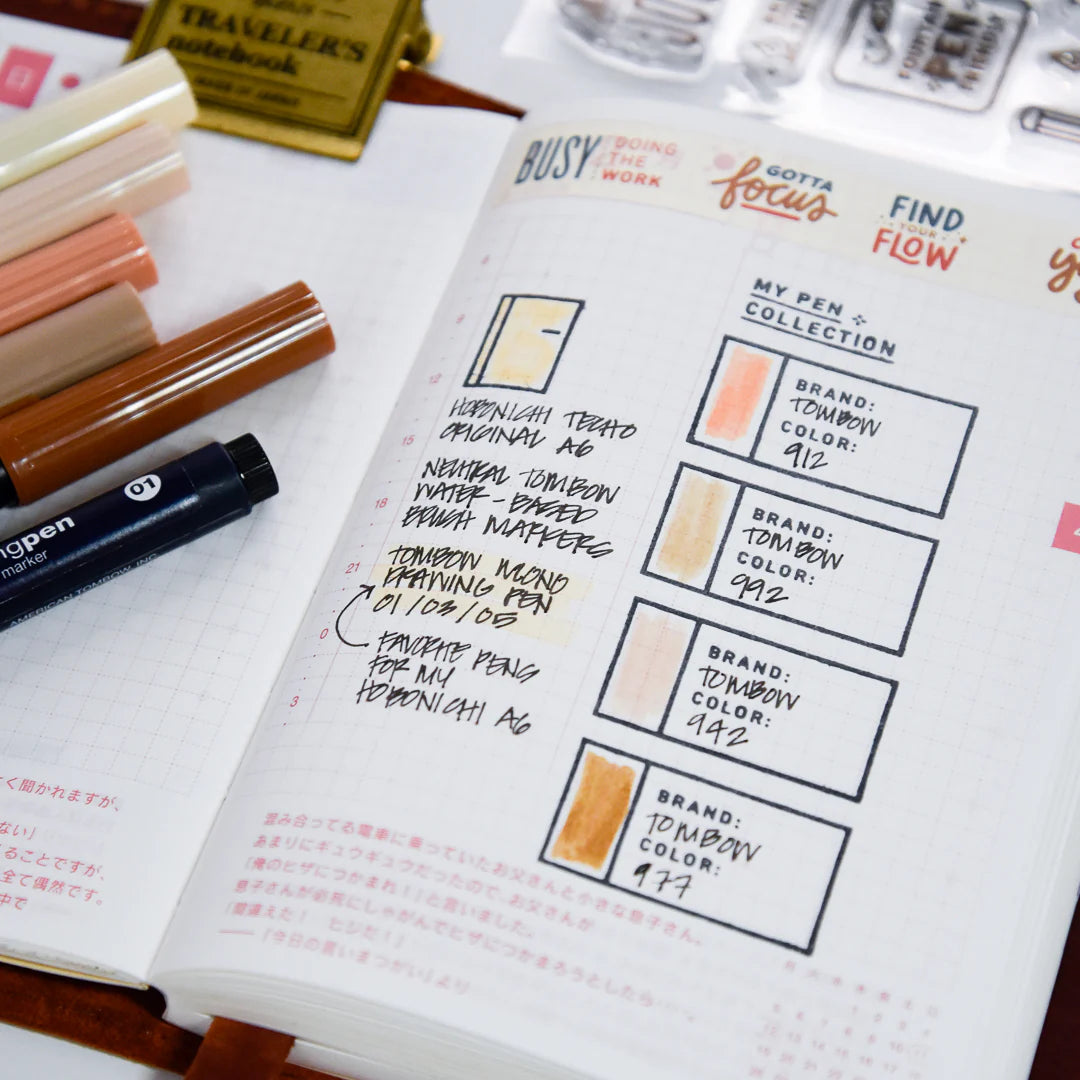 TRAVELER'S
notebook
BUSY DOING THE WORK
GOTTA focus
FIND YOUR FLOW
PEN
9
12
15
18
21
0
3
HOBONICHI TECHO
ORIGINAL A6
NEUTRAL TOMBOW
WATER-BASED
BRUSH MARKERS
TOMBOW MONO
DRAWING PEN
01/03/05
FAVORITE PENS
FOR MY
HOBONICHI A6
MY PEN
COLLECTION
BRAND:
TOMBOW
COLOR:
912
BRAND:
TOMBOW
COLOR:
992
BRAND:
TOMBOW
COLOR:
942
BRAND:
TOMBOW
COLOR:
977
01
ngpen
marker
AMERICAN TOMBOW, INC.
く聞かれますが、
ない」
ることですが、
全て偶然です。
中で
混み合ってる電車に乗っていたお父さんと小さな息子さん。
あまりにギュウギュウだったので、お父さんが
「俺のヒザにつかまれ!」と言いました。
息子さんが必死にしゃがんでヒザにつかまろうとしたら……、
「間違えた! ヒジだ!」
──『今日の言いまつがい』より